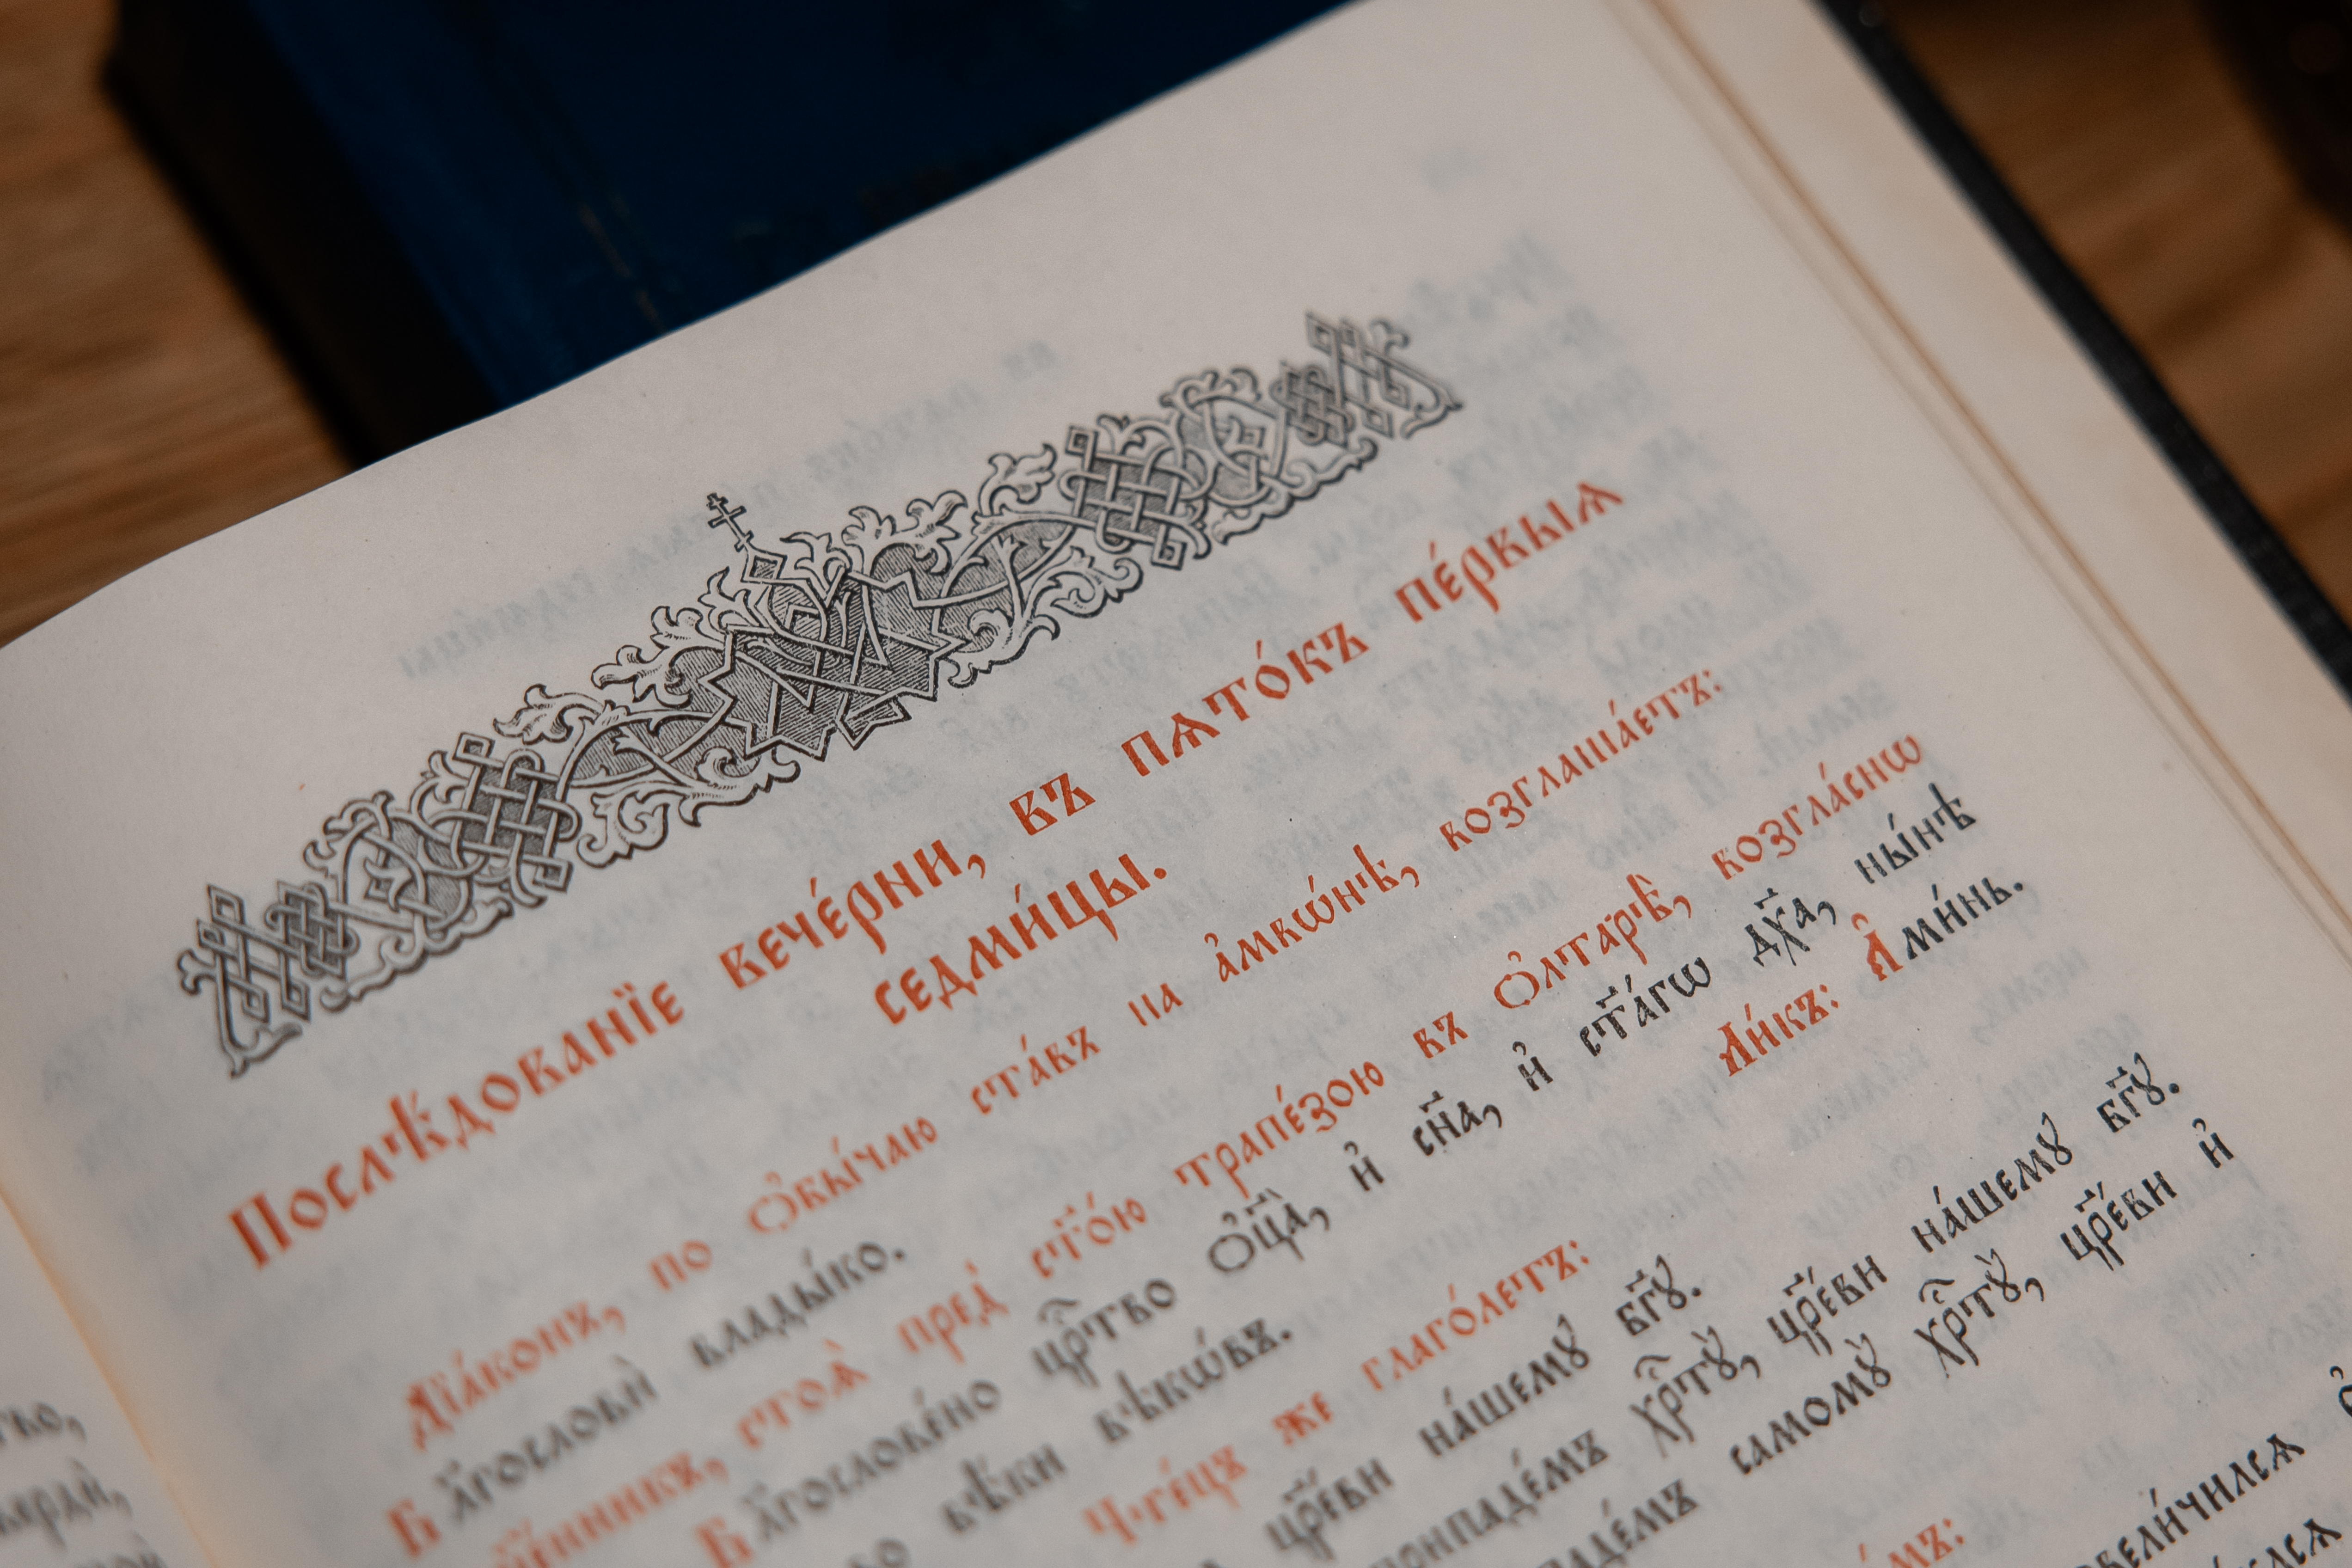 Послѣ́дованїе вече́рни, въ пѧто́къ пе́рвыѧ
седми́цы.
Дїа́конъ, по ѻ҆бы́чаю ста́въ на а҆мвѡ́нѣ, возглаша́етъ:
Бл҃гословѝ влады́ко.
стоѧ̀ пред̾ ст҃о́ю трапе́зою въ ѻ҆лтарѣ̀, возгла́снѡ
Бл҃гослове́но цр҇тво ѻ҆ц҃а̀, и҆ сн҃а, и҆ ст҃а́гѡ дх҃а, ны́нѣ
вѣ́ки вѣкѡ́въ. Ли́къ: А҆ми́нь.
Чте́цъ же глаго́летъ:
цр҃е́ви на́шемꙋ бг҃ꙋ.
хр҇тꙋ̀, цр҃е́ви на́шемꙋ бг҃ꙋ.
самомꙋ̀ хр҇тꙋ̀, цр҃е́ви и҆